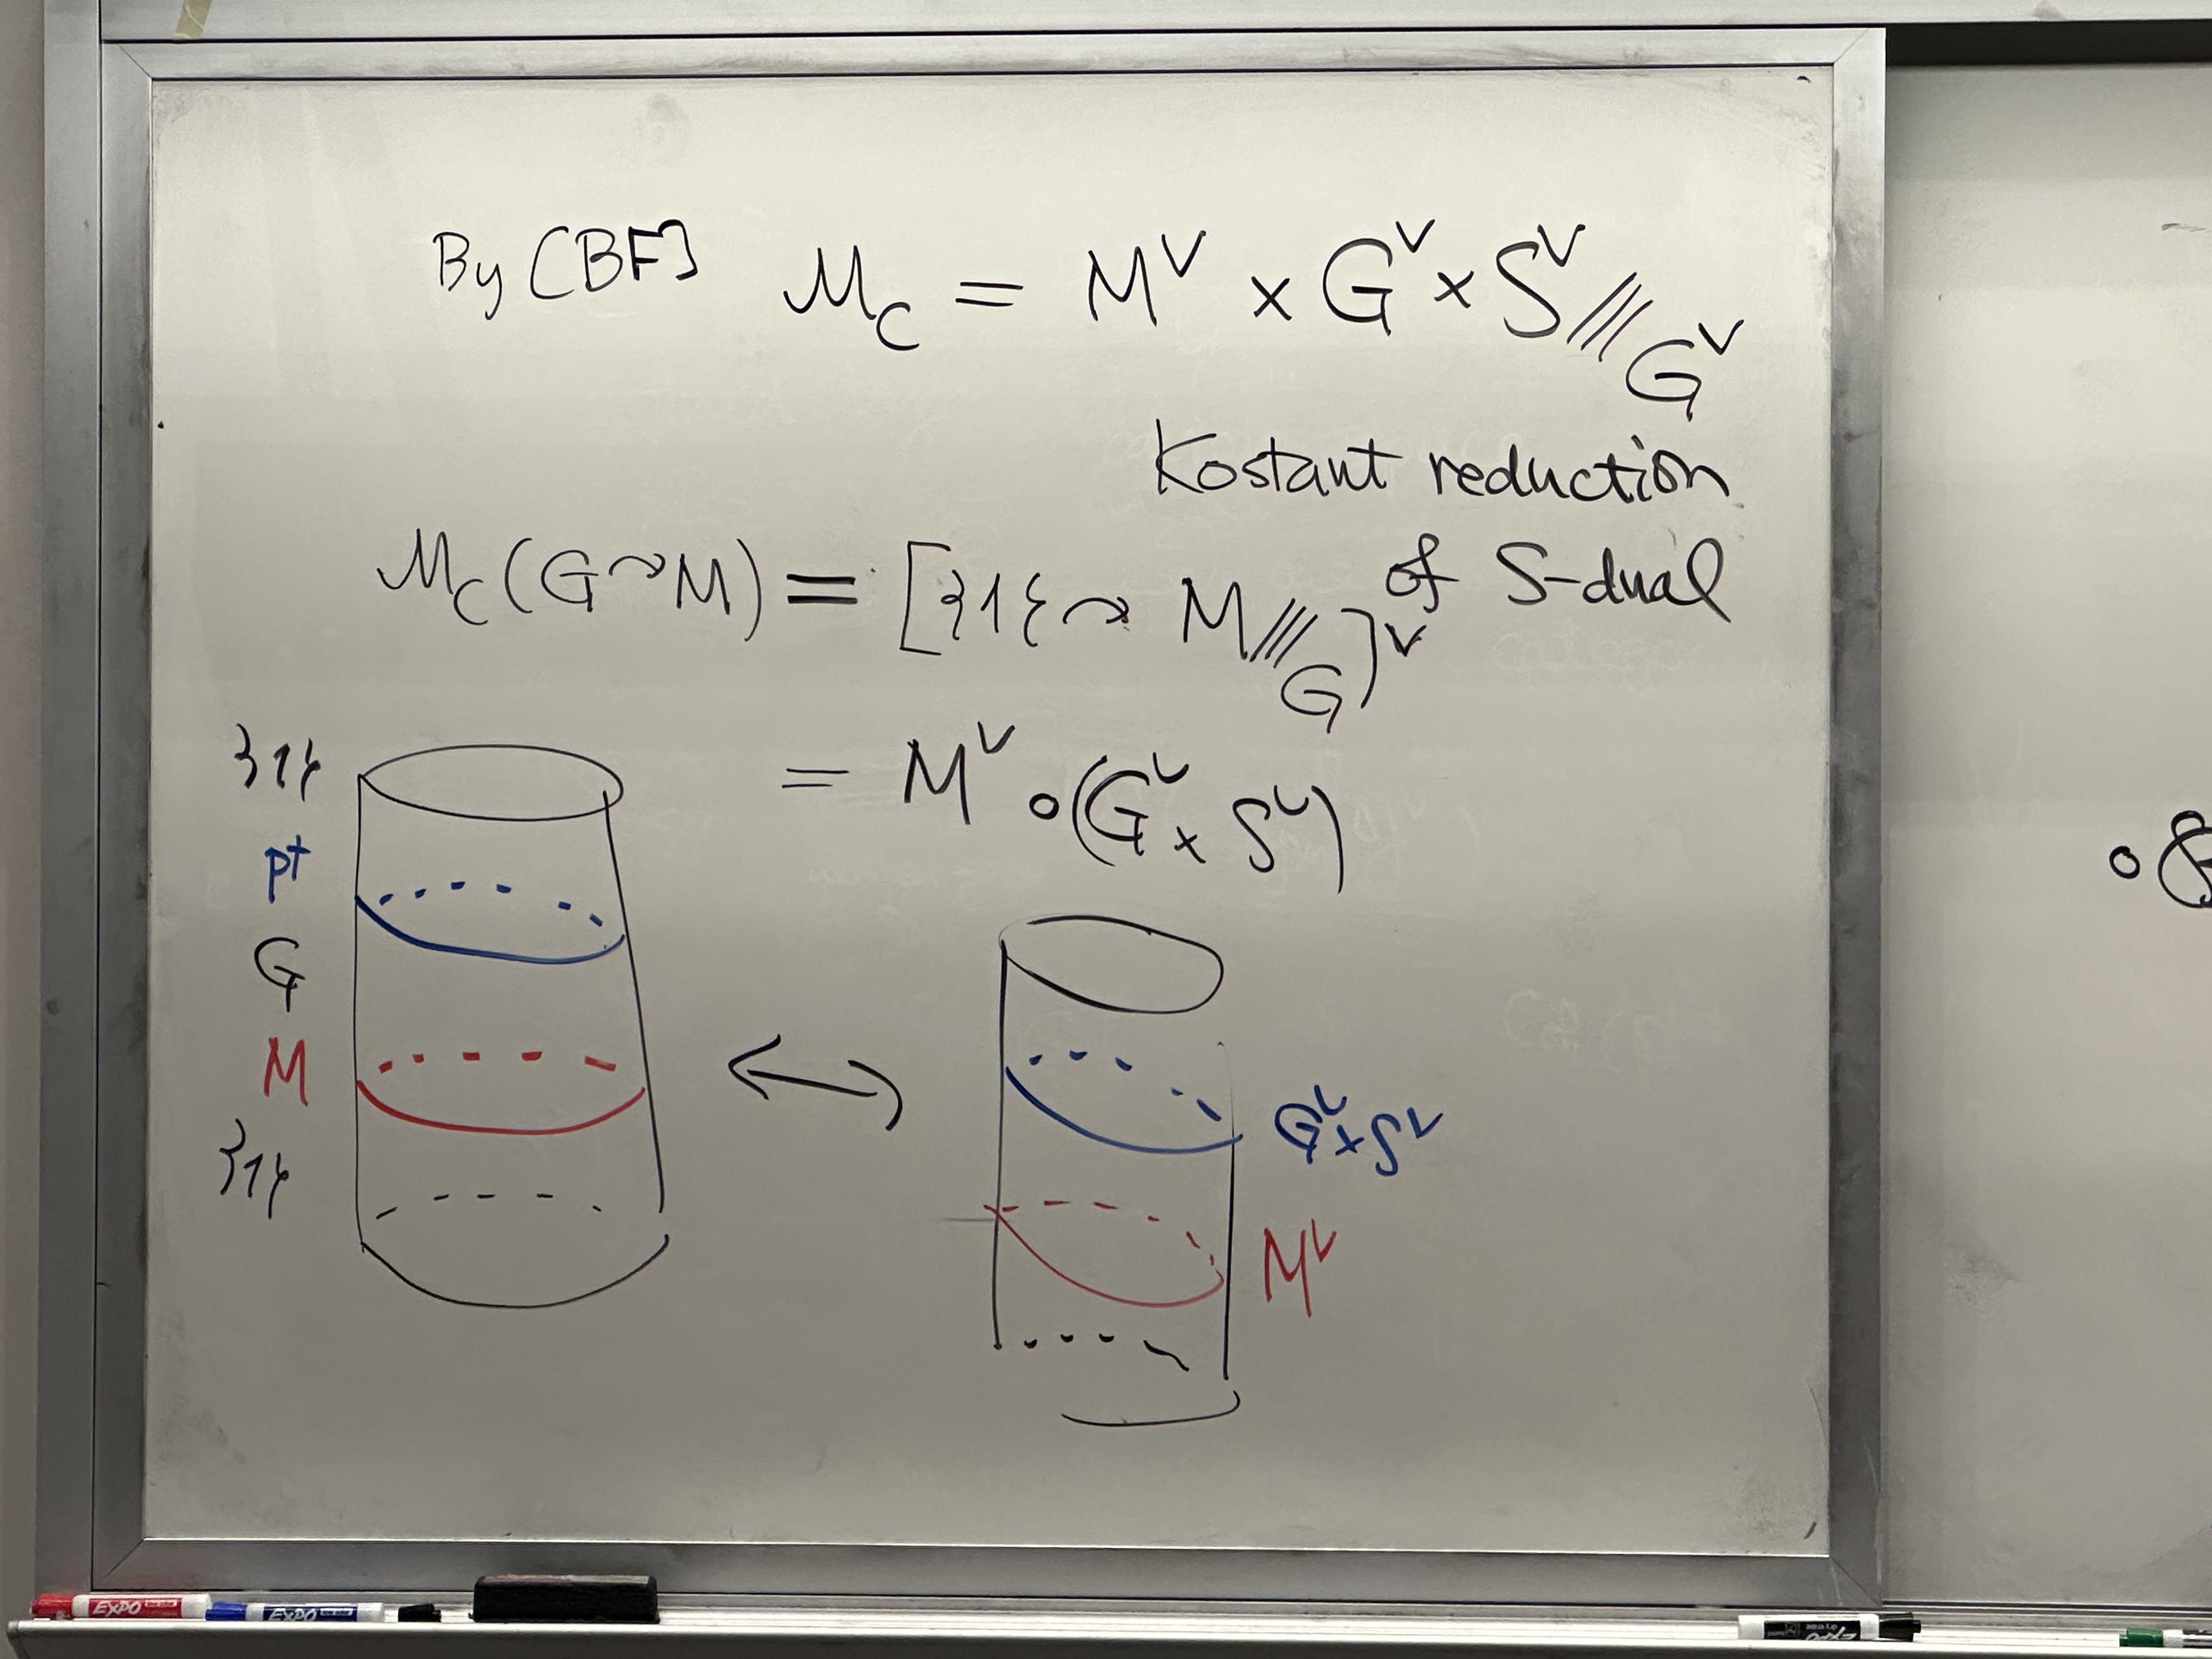 By [BF] 𝓜_C = M^∨ × G^∨ × S^∨ /// G^∨
Kostant reduction
of S-dual
𝓜_C(G ↷ M) = [{1} ↷ M /// G]^∨
= M^∨ ∘ (G^∨ × S^∨)
{1}
pt
G
M
{1}
G^∨ × S^∨
M^∨
EXPO
EXPO
EXPO